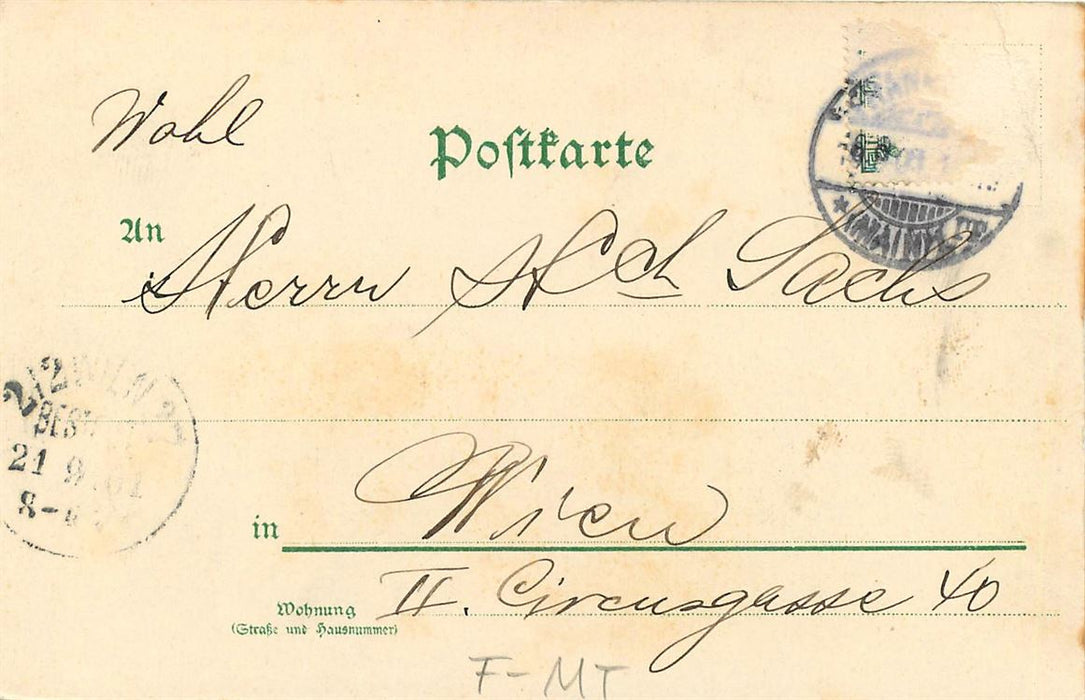 Wohl
Postkarte
An Herrn Hch Sachs
(MAIN)
2/2 WIEN
BEST
21 9 01
8-
in Wien
Wohnung II. Circusgasse 40
(Straße und Hausnummer)
F-MT